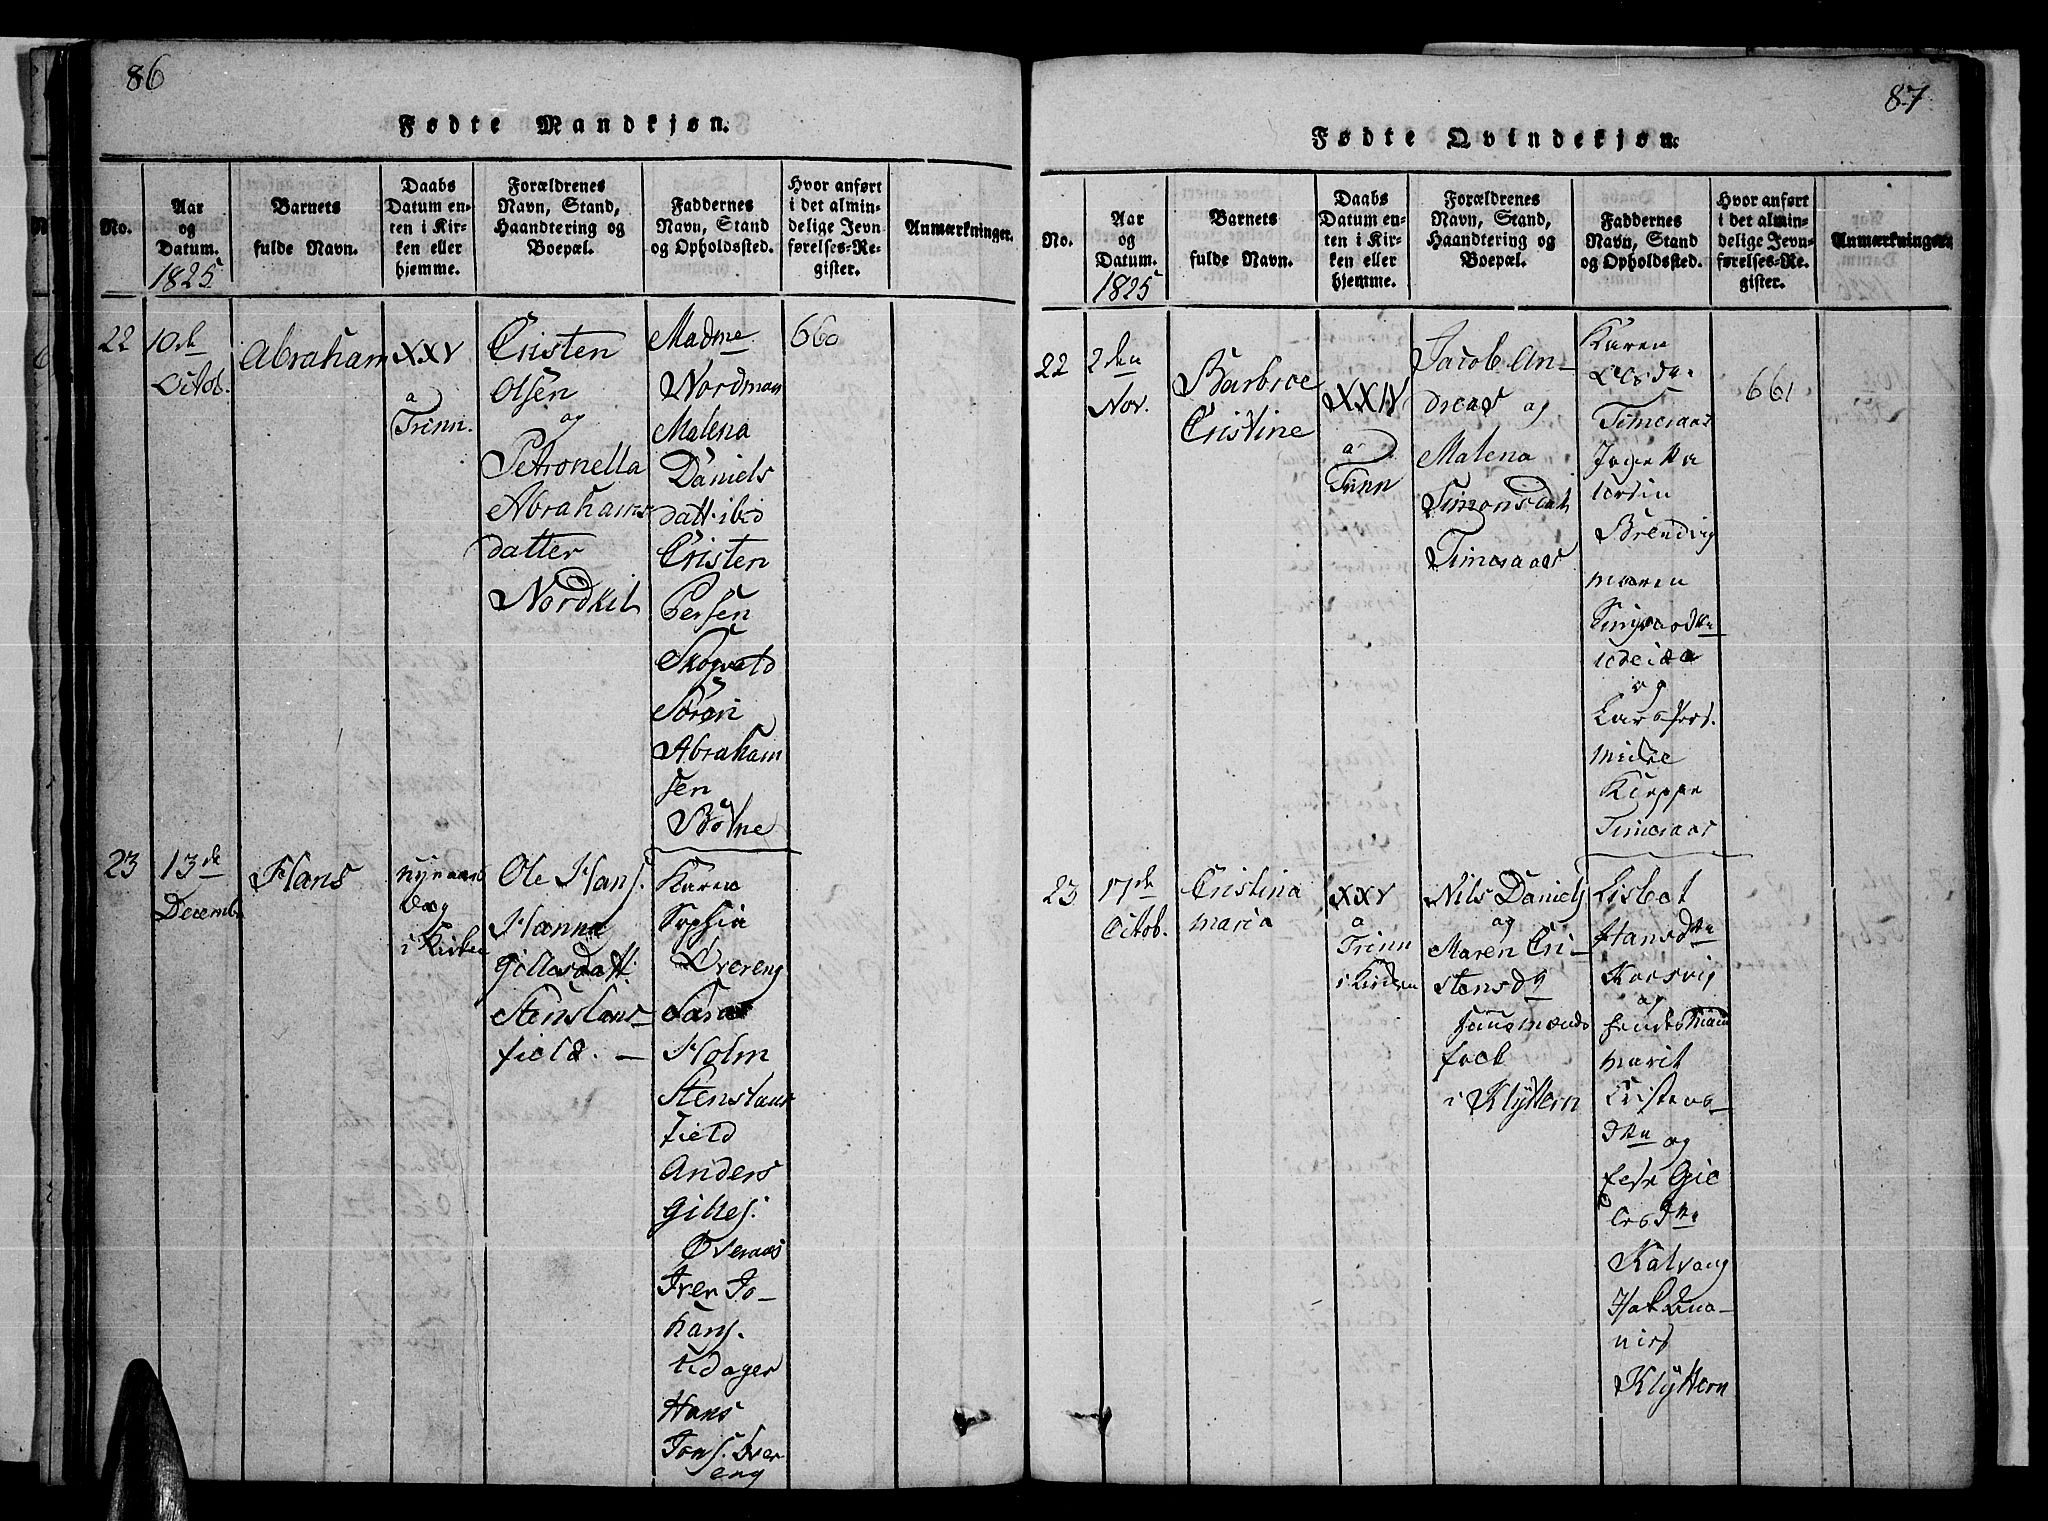 86
Fødte Mandkjøn.
No.
Aar
og
Datum.
1825
Barnets
fulde Navn.
Daabs
Datum en-
ten i Kir-
ken eller
hjemme.
Forældrenes
Navn, Stand,
Haandtering og
Boepæl.
Faddernes
Navn, Stand
og Opholdssted.
Hvor anført
i det almin-
delige Jevn-
førelses-Re-
gister.
Anmærkninger.
22
10de
Octob.
Abraham
XXV
a
Trinn.
Cristen
Olsen
og
Petronella
Abrahams
datter
Nordkil
Madme
Nordman
Malena
Daniels
datt. ibid
Cristen
Persen
Skogvold
Sören
Abraham
sen
Botne
660
23
13de
Decemb.
Hans
nyeaars
Dag
i Kirken
Ole Hans.
Hanna
Gillesdatt.
Stenslans-
field. —
Karen
Sophia
Overeng
Sara
Holm
Stenslans
field
Anders
Gilles.
Overaas
Iver Jo-
hans.
Hans
Jons. Over
eng
87
Fødte Qvindekjøn.
No.
Aar
og
Datum.
1825
Barnets
fulde Navn.
Daabs
Datum en-
ten i Kir-
ken eller
hjemme.
Forældrenes
Navn, Stand,
Haandtering og
Boepæl.
Faddernes
Navn, Stand
og Opholdssted.
Hvor anført
i det almin-
delige Jevn-
førelses-Re-
gister.
Anmærkninger.
22
2den
Nov.
Barbroe
Cristine
XXIV
a
Trinn
Jacob An-
dreas og
Malena
Simonsdat
Timeraas
Karen
Timeraas
Brendvig
maren
og
Lars
Timeraas
661
23
17de
Octob.
Cristina
maria
XXV
a
Trinn
i Kirken
Nils Daniels
og
Maren Cri-
stensd
huusmands
folk
i Klyttern
Lisbet
Hansdtr
Korsvig
og
marit
Cristens-
dtr og
Kalvang
Klyttern